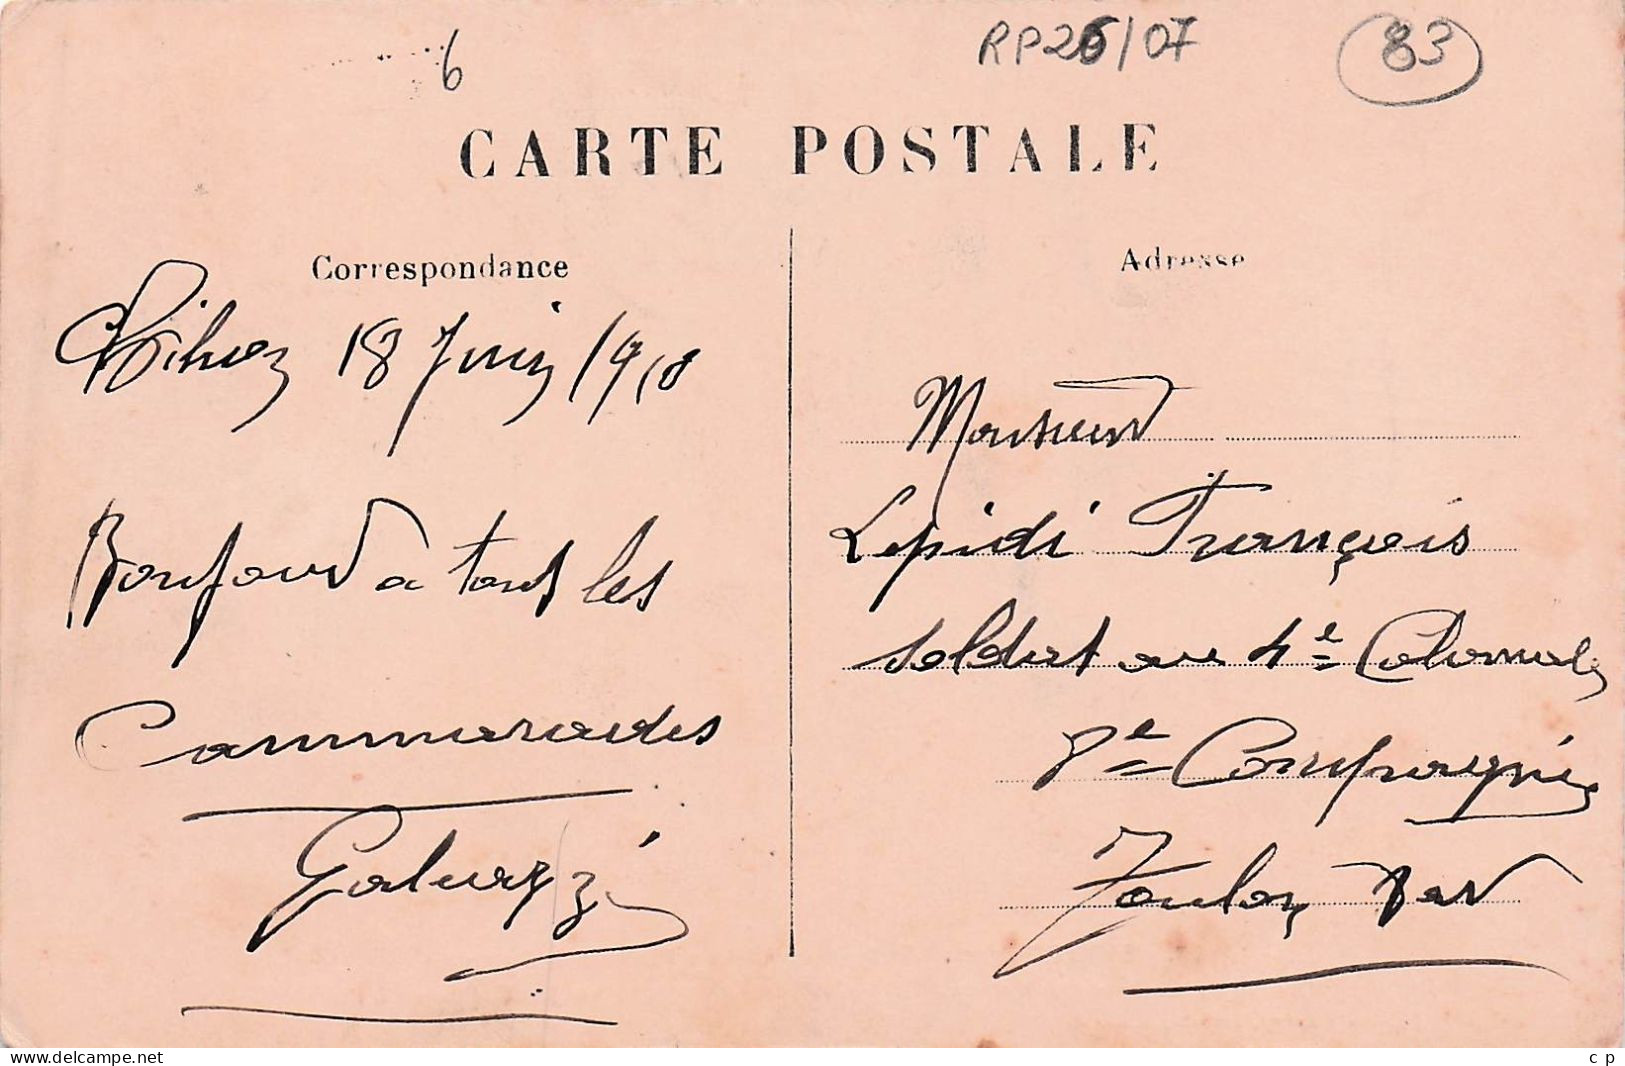 6
RP26/07
83
CARTE POSTALE
Correspondance
18 Juin 1918
Bonjour a tous les
Cammarades
Galeazzi
Adresse
Monsieur
Lepidi François
soldat au 4e Colonial
8e Compagnie
Toulon Var
www.delcampe.net
c p